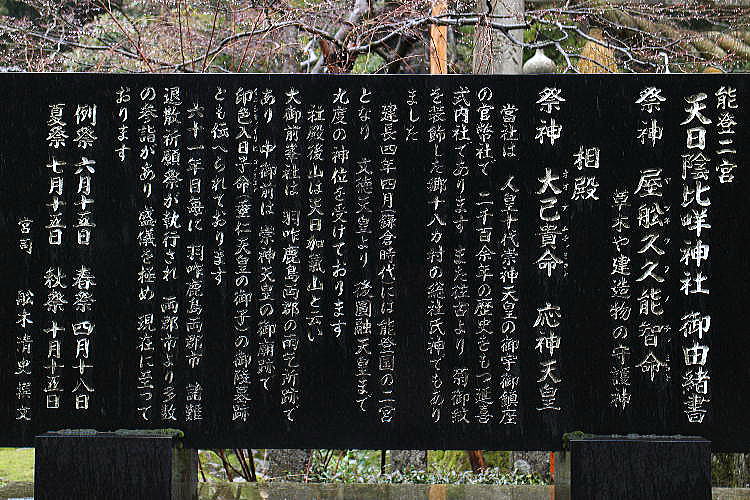 能登二宮
天日陰比咩神社 御由緒書
祭神 屋船久久能智命
草木や建造物の守護神
相殿
祭神 大己貴命 応神天皇
当社は 人皇十代崇神天皇の御宇御鎮座
の官幣社で 二千百余年の歴史をもつ延喜
式内社であります また往古より 菊御紋
を装飾した郷十八カ村の総社氏神でもあり
ました
建長四年四月(鎌倉時代)には能登国の二宮
となり 文徳天皇より 後圓融天皇まで
九度の神位を受けております
社殿後山は天日加気山と云い
大御前峯社は 羽咋鹿島両郡の雨乞所跡で
あり 中御前は 崇神天皇の御廟跡で
印色入日子命(垂仁天皇の御子)の御陵墓跡
とも伝へられております
六十一年目毎に 羽咋鹿島両郡市 諸難
退散祈願祭が執行され 両郡市より多数
の参詣があり 盛儀を極め 現在に至って
おります
例祭 六月十五日 春祭 四月十八日
夏祭 七月十五日 秋祭 十月十五日
宮司 船木清史 撰文